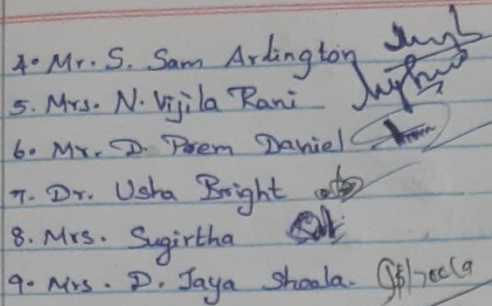 4. Mr. S. Sam Ardington
5. Mrs. N. Vijila Rani
6. Mr. D. Prem Daniel
7. Dr. Usha Bright
8. Mrs. Sugirtha
9. Mrs. D. Jaya Sheela.